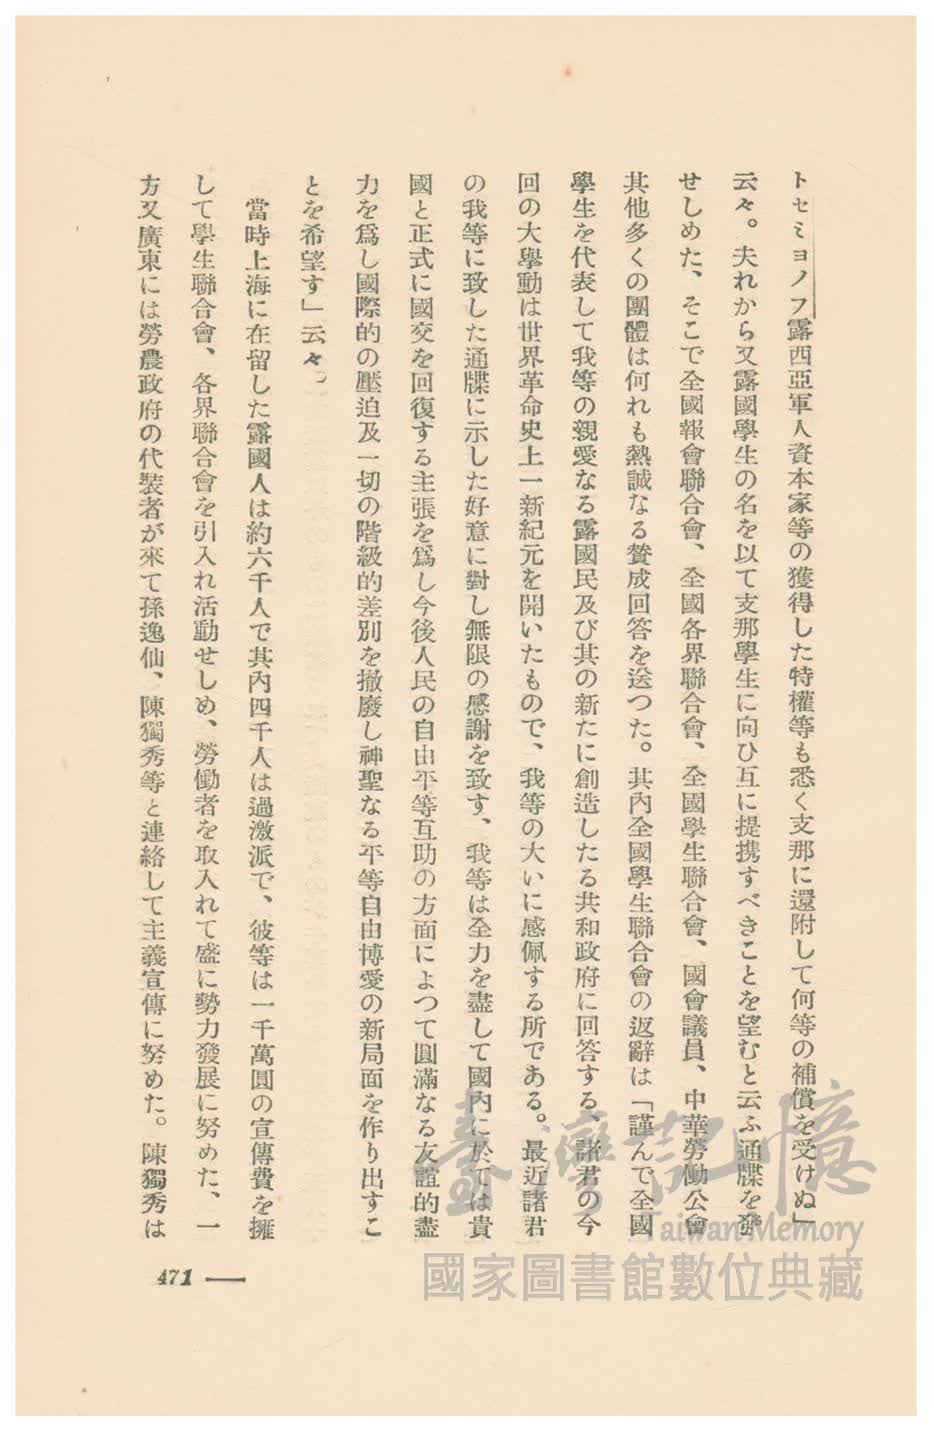 トセミヨノフ露西亞軍人資本家等の獲得した特權等も悉く支那に還附して何等の補償を受けぬ」
云々。夫れから又露國學生の名を以て支那學生に向ひ互に提携すべきことを望むと云ふ通牒を發
せしめた、そこで全國報會聯合會、全國各界聯合會、全國學生聯合會、國會議員、中華勞働公會
其他多くの團體は何れも熱誠なる賛成回答を送つた。其內全國學生聯合會の返辭は「謹んで全國
學生を代表して我等の親愛なる露國民及び其の新たに創造したる共和政府に回答する、諸君の今
回の大擧動は世界革命史上一新紀元を開いたもので、我等の大いに感佩する所である。最近諸君
の我等に致した通牒に示した好意に對し無限の感謝を致す、我等は全力を盡して國內に於ては貴
國と正式に國交を回復する主張を爲し今後人民の自由平等互助の方面によつて圓滿なる友誼的盡
力を爲し國際的の壓迫及一切の階級的差別を撤廢し神聖なる平等自由博愛の新局面を作り出すこ
とを希望す」云々。
當時上海に在留した露國人は約六千人で其內四千人は過激派で、彼等は一千萬圓の宣傳費を擁
して學生聯合會、各界聯合會を引入れ活動せしめ、勞働者を取入れて盛に勢力發展に努めた、一
方又廣東には勞農政府の代裝者が來て孫逸仙、陳獨秀等と連絡して主義宣傳に努めた。陳獨秀は
471 —
臺灣記憶
Taiwan Memory
國家圖書館數位典藏